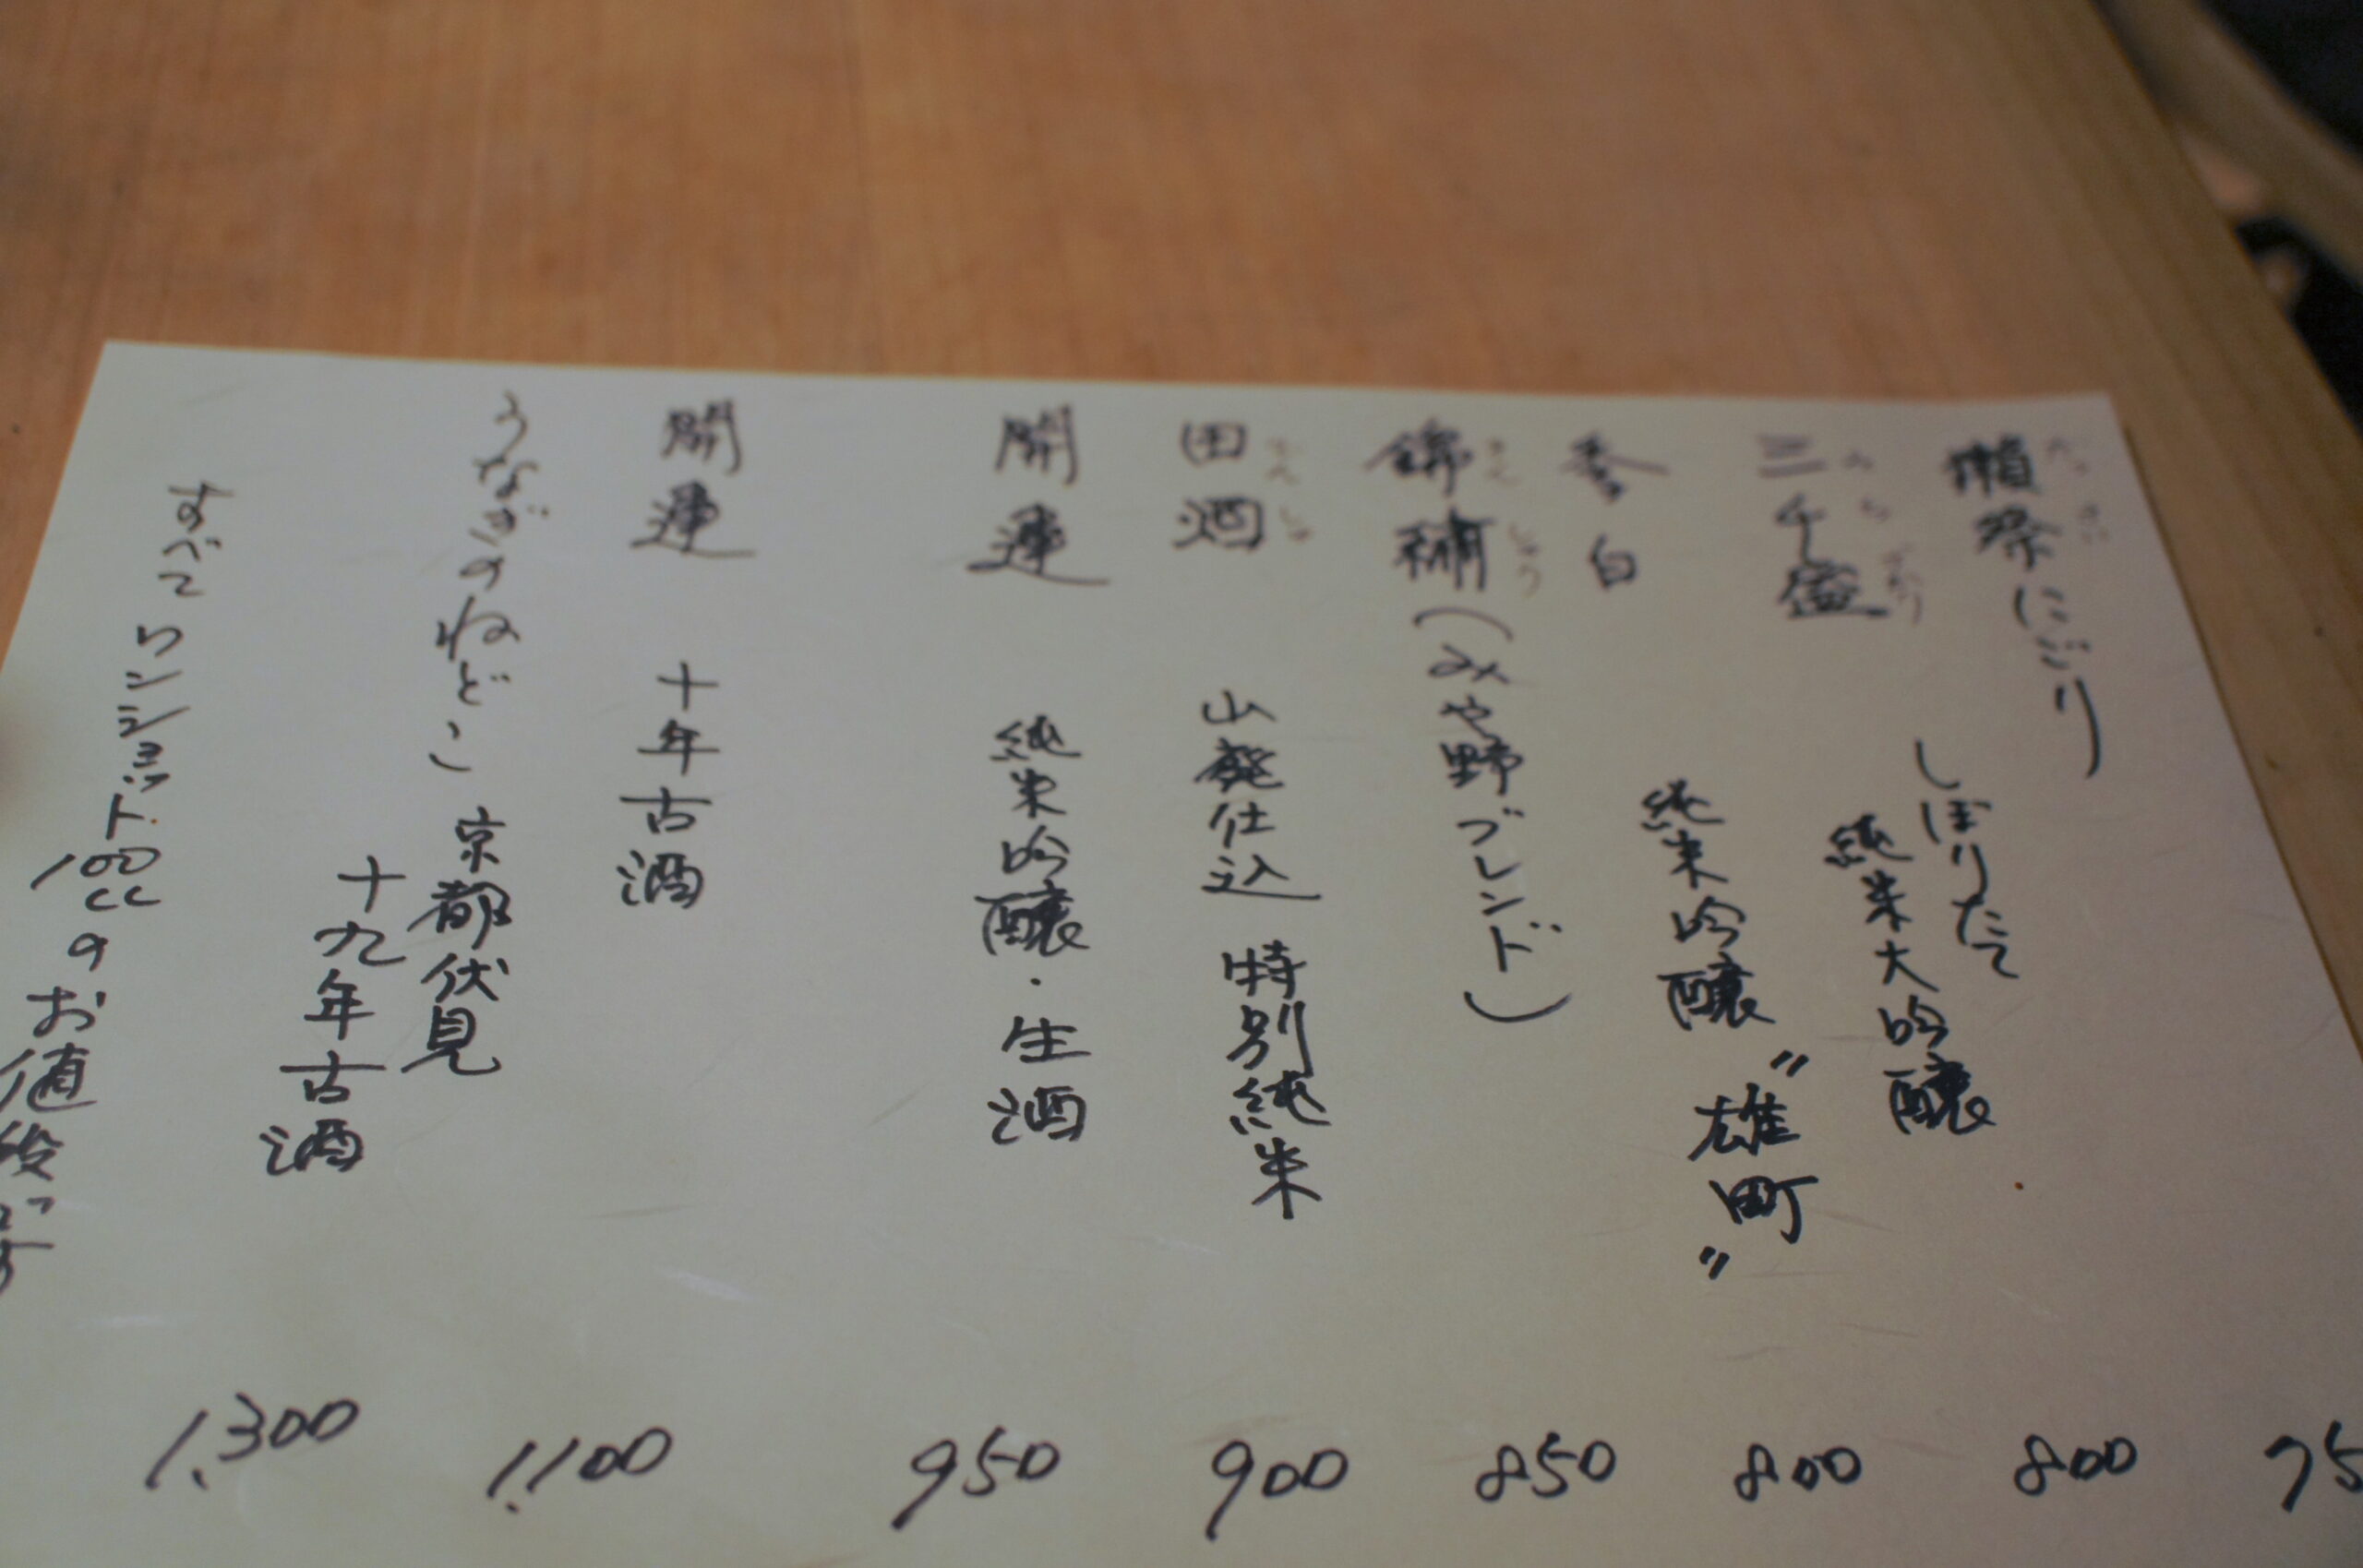 獺祭にごり
だっさい
しぼりたて
三千盛
みちざかり
純米大吟醸
香白
純米吟醸〝雄町〟
錦繍(みや野ブレンド)
きんしゅう
田酒 山廃仕込 特別純米
でんしゅ
開運 純米吟醸・生酒
開運 十年古酒
うなぎのねどこ 京都伏見
十九年古酒
すべてワンショット100ccのお値段です
75
800
800
850
900
950
1.100
1.300